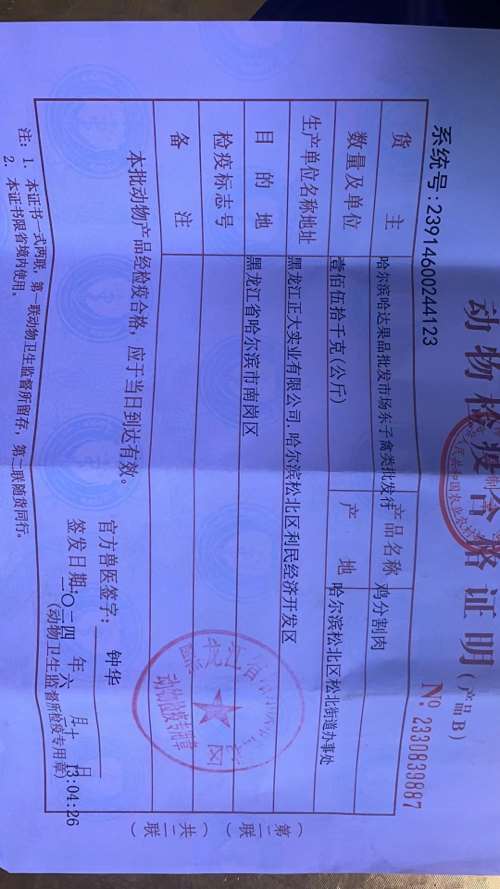 动物检疫合格证明(产品B)
系统号:23914600244123
No. 2330839887
货主 哈尔滨哈达果品批发市场东子禽类批发行 产品名称 鸡分割肉
数量及单位 壹佰伍拾千克(公斤) 产地 哈尔滨松北区松北街道办事处
生产单位名称地址 黑龙江正大实业有限公司.哈尔滨松北区利民经济开发区
目的地 黑龙江省哈尔滨市南岗区
检疫标志号
备注
本批动物产品经检疫合格,应于当日到达有效。
官方兽医签字: 钟华
签发日期:二〇二四年六月十日 13:04:26
(动物卫生监督所检疫专用章)
注:1. 本证书一式两联,第一联动物卫生监督所留存,第二联随货同行。
2. 本证书限省境内使用。
(第二联)
(共二联)